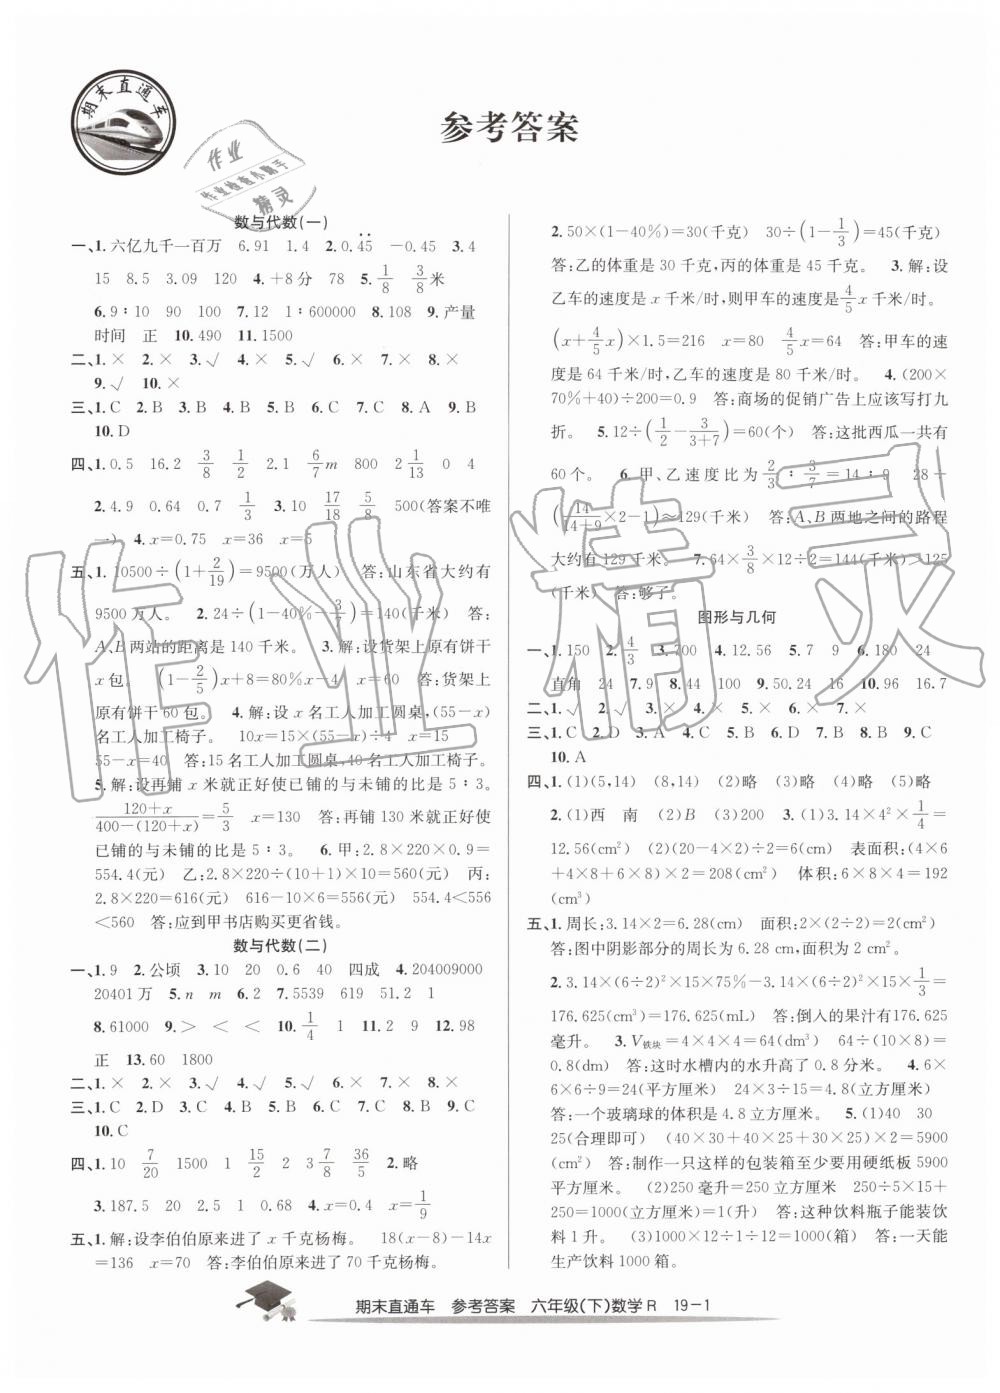 期末直通车
参考答案
作业
作业检查小助手
精灵
数与代数(一)
一、1.六亿九千一百万 6.91 1.4 2.0.4̇5̇ -0.45 3.4
15 8.5 3.09 120 4.+8分 78 5.1/8 3/8米
6.9∶10 90 100 7.12 1∶600000 8.108 9.产量
时间 正 10.490 11.1500
二、1.× 2.× 3.√ 4.× 5.√ 6.× 7.× 8.×
9.√ 10.×
三、1.C 2.B 3.B 4.B 5.B 6.C 7.C 8.A 9.B
10.D
四、1.0.5 16.2 3/8 1/2 2.1 6/7m 800 2 1/13 0 4
2.4.9 0.64 0.7 1/3 3.10 17/18 5/8 500(答案不唯
一) 4.x=0.75 x=36 x=5
五、1.10500÷(1+2/19)=9500(万人) 答:山东省大约有
9500万人。 2.24÷(1-40%-3/7)=140(千米) 答:
A、B两站的距离是140千米。 3.解:设货架上原有饼干
x包。 (1-2/5)x+8=80%x-4 x=60 答:货架上
原有饼干60包。 4.解:设x名工人加工圆桌,(55-x)
名工人加工椅子。 10x=15×(55-x)÷4 x=15
55-x=40 答:15名工人加工圆桌,40名工人加工椅子。
5.解:设再铺x米就正好使已铺的与未铺的比是5∶3。
120+x/400-(120+x)=5/3 x=130 答:再铺130米就正好使
已铺的与未铺的比是5∶3。 6.甲:2.8×220×0.9=
554.4(元) 乙:2.8×220÷(10+1)×10=560(元) 丙:
2.8×220=616(元) 616-10×6=556(元) 554.4<556
<560 答:应到甲书店购买更省钱。
数与代数(二)
一、1.9 2.公顷 3.10 20 0.6 40 四成 4.204009000
20401万 5.n m 6.2 7.5539 619 51.2 1
8.61000 9.> < < < 10.1/4 1 11.2 9 12.98
正 13.60 1800
二、1.× 2.× 3.√ 4.√ 5.√ 6.× 7.√ 8.×
三、1.C 2.D 3.C 4.B 5.C 6.B 7.B 8.B 9.C
10.C
四、1.10 7/20 1500 1 15/2 2 3 7/8 36/5 2.略
3.187.5 20 2.5 1 4.x=250 x=0.4 x=1/9
五、1.解:设李伯伯原来进了x千克杨梅。 18(x-8)-14x
=136 x=70 答:李伯伯原来进了70千克杨梅。
2.50×(1-40%)=30(千克) 30÷(1-1/3)=45(千克)
答:乙的体重是30千克,丙的体重是45千克。 3.解:设
乙车的速度是x千米/时,则甲车的速度是4/5x千米/时。
(x+4/5x)×1.5=216 x=80 4/5x=64 答:甲车的速
度是64千米/时,乙车的速度是80千米/时。 4.(200×
70%+40)÷200=0.9 答:商场的促销广告上应该写打九
折。 5.12÷(1/2-3/3+7)=60(个) 答:这批西瓜一共有
60个。 6.甲、乙速度比为2/3∶3/7=14∶9 28÷
(14/14+9×2-1)≈129(千米) 答:A、B两地之间的路程
大约有129千米。 7.64×3/8×12÷2=144(千米)>125
(千米) 答:够了。
图形与几何
一、1.150 2.4/3 3.700 4.12.56 5.7 9 6.180 24
直角 24 7.9 8.44 100 9.50.24 16 10.96 16.7
二、1.√ 2.√ 3.× 4.× 5.× 6.× 7.×
三、1.C 2.D 3.A 4.C 5.A 6.D 7.B 8.B 9.C
10.A
四、1.(1)(5,14) (8,14) (2)略 (3)略 (4)略 (5)略
2.(1)西 南 (2)B (3)200 3.(1)3.14×4²×1/4=
12.56(cm²) (2)(20-4×2)÷2=6(cm) 表面积:(4×6
+4×8+6×8)×2=208(cm²) 体积:6×8×4=192
(cm³)
五、1.周长:3.14×2=6.28(cm) 面积:2×(2÷2)=2(cm²)
答:图中阴影部分的周长为6.28 cm,面积为2 cm²。
2.3.14×(6÷2)²×15×75%-3.14×(6÷2)²×15×1/3=
176.625(cm³)=176.625(mL) 答:倒入的果汁有176.625
毫升。 3.V铁块=4×4×4=64(dm³) 64÷(10×8)=
0.8(dm) 答:这时水槽内的水升高了0.8分米。 4.6×
6×6÷9=24(平方厘米) 24×3÷15=4.8(立方厘米)
答:一个玻璃球的体积是4.8立方厘米。 5.(1)40 30
25(合理即可) (40×30+40×25+30×25)×2=5900
(cm²) 答:制作一只这样的包装箱至少要用硬纸板5900
平方厘米。 (2)250毫升=250立方厘米 250÷5×15+
250=1000(立方厘米)=1(升) 答:这种饮料瓶子能装饮
料1升。 (3)1000×12÷1÷12=1000(箱) 答:一天能
生产饮料1000箱。
期末直通车 参考答案 六年级(下)数学R 19-1
作业精灵